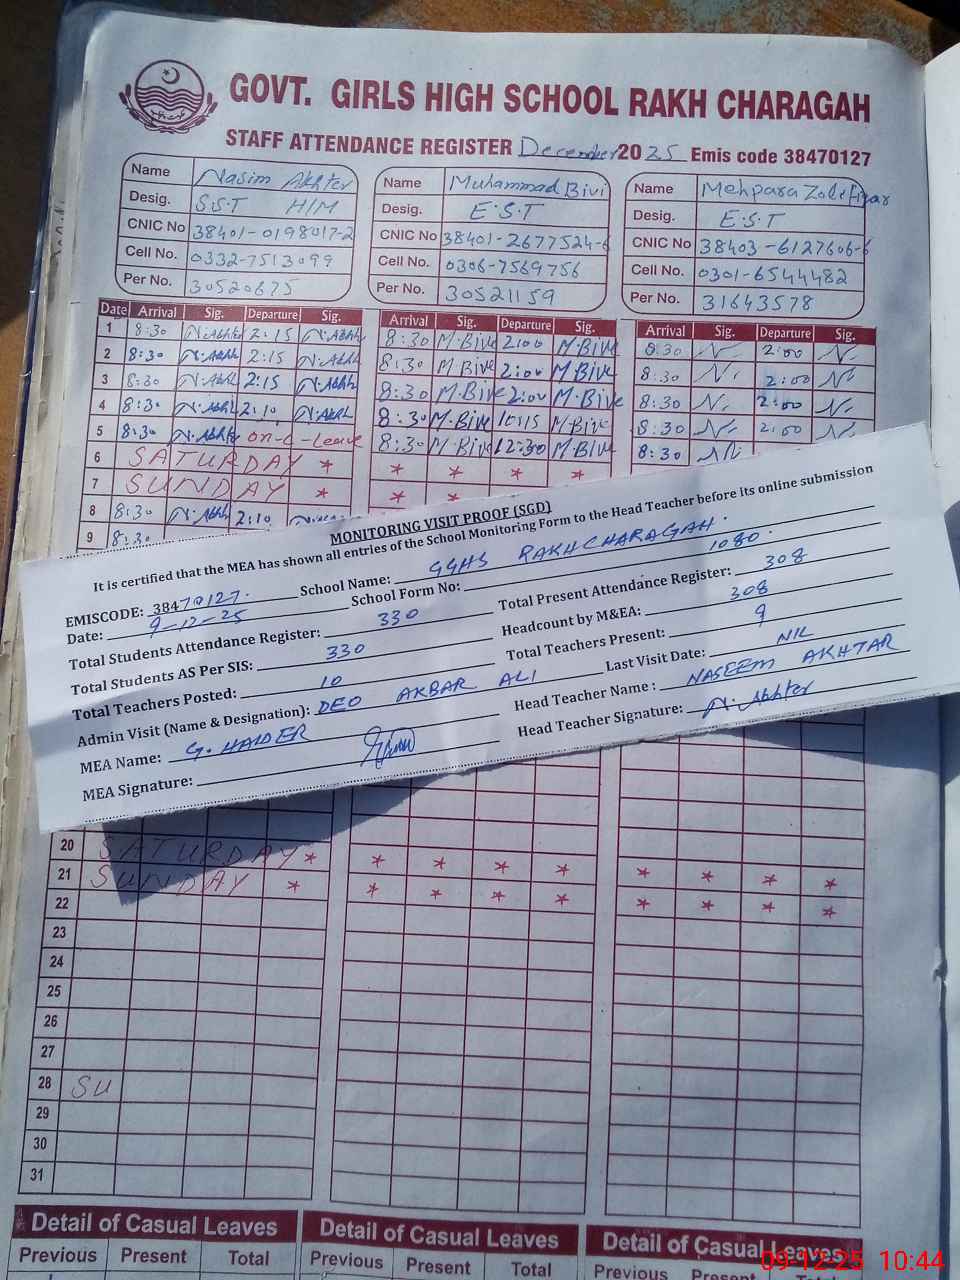 GOVT. GIRLS HIGH SCHOOL RAKH CHARAGAH
STAFF ATTENDANCE REGISTER December 2025 Emis code 38470127
Name Nasim Akhter Name Muhammad Bivi Name Mehpara Zolifiqar
Desig. S.S.T H/M Desig. E.S.T Desig. E.S.T
CNIC No 38401-0198017-2 CNIC No 38401-2677524-6 CNIC No 38403-6127606-6
Cell No. 0332-7513099 Cell No. 0306-7569756 Cell No. 0301-6544482
Per No. 30520675 Per No. 30521159 Per No. 31643578
Date Arrival Sig. Departure Sig. Arrival Sig. Departure Sig. Arrival Sig. Departure Sig.
1 8:30 N.Akhter 2:15 N.Akhter 8:30 M.Bive 2:00 M.Bive 8:30 2:00
2 8:30 N.Akh 2:15 N.Akh 8:30 M.Bive 2:00 M.Bive 8:30 2:00
3 8:30 N.Akh 2:15 N.Akhh 8:30 M.Bive 2:00 M.Bive 8:30 2:00
4 8:30 N.Akh 2:10 N.Akh 8:30 M.Bive 10:15 M.Bive 8:30 2:00
5 8:30 N.Akhter on-C-Leave 8:30 M.Bive 12:30 M.Bive 8:30
6 SATURDAY * * * * *
7 SUNDAY * * *
8 8:30 N.Akh 2:10
9 8:30
MONITORING VISIT PROOF (SGD)
It is certified that the MEA has shown all entries of the School Monitoring Form to the Head Teacher before its online submission
EMISCODE: 38470127. School Name: GGHS RAKHCHARAGAH.
Date: 9-12-25 School Form No: 1080.
Total Students Attendance Register: 330 Total Present Attendance Register: 308
Total Students AS Per SIS: 330 Headcount by M&EA: 308
Total Teachers Posted: 10 Total Teachers Present: 9
Admin Visit (Name & Designation): DEO AKBAR ALI Last Visit Date: NIL
MEA Name: G. HAIDER Head Teacher Name : NASEEM AKHTAR
MEA Signature: Head Teacher Signature: N.Akhter
20 SATURDAY * * * * *
21 SUNDAY * * * * * * * * *
22 * * * *
23
24
25
26
27
28 SU
29
30
31
Detail of Casual Leaves Detail of Casual Leaves Detail of Casual Leaves
Previous Present Total Previous Present Total Previous Present Total
09-12-25 10:44